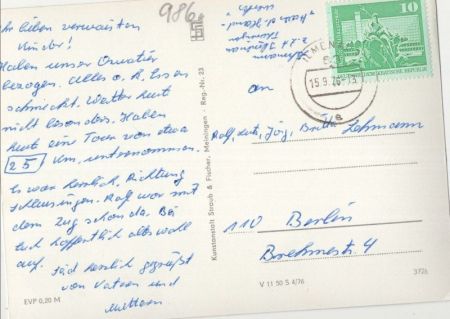 Ihr lieben verwaisten
Kinder!
Haben unser Quartier
bezogen. Alles o.K. Essen
schmeckt. Wetter heut
nicht besonders. Haben
heut eine Tour von etwa
25 km unternommen.
Es war herrlich, Richtung
Schleusingen. Ralf war mit
dem Zug schon da. Bei
Euch hoffentlich alles wohl
auf. Seid herzlich gegrüßt
von Vatern und
Muttern
EVP 0,20 M
986
Kunstanstalt Straub & Fischer, Meiningen · Reg.-Nr. 23
V 11 50 S 4/76
3726
Lehmann
Ilmenau
10
DEUTSCHE DEMOKRATISCHE REPUBLIK
ILMENAU
15.9.76-13
an
Ralf, Lutz, Jörg, Britta Lehmann
110 Berlin
Brehmestr. 4